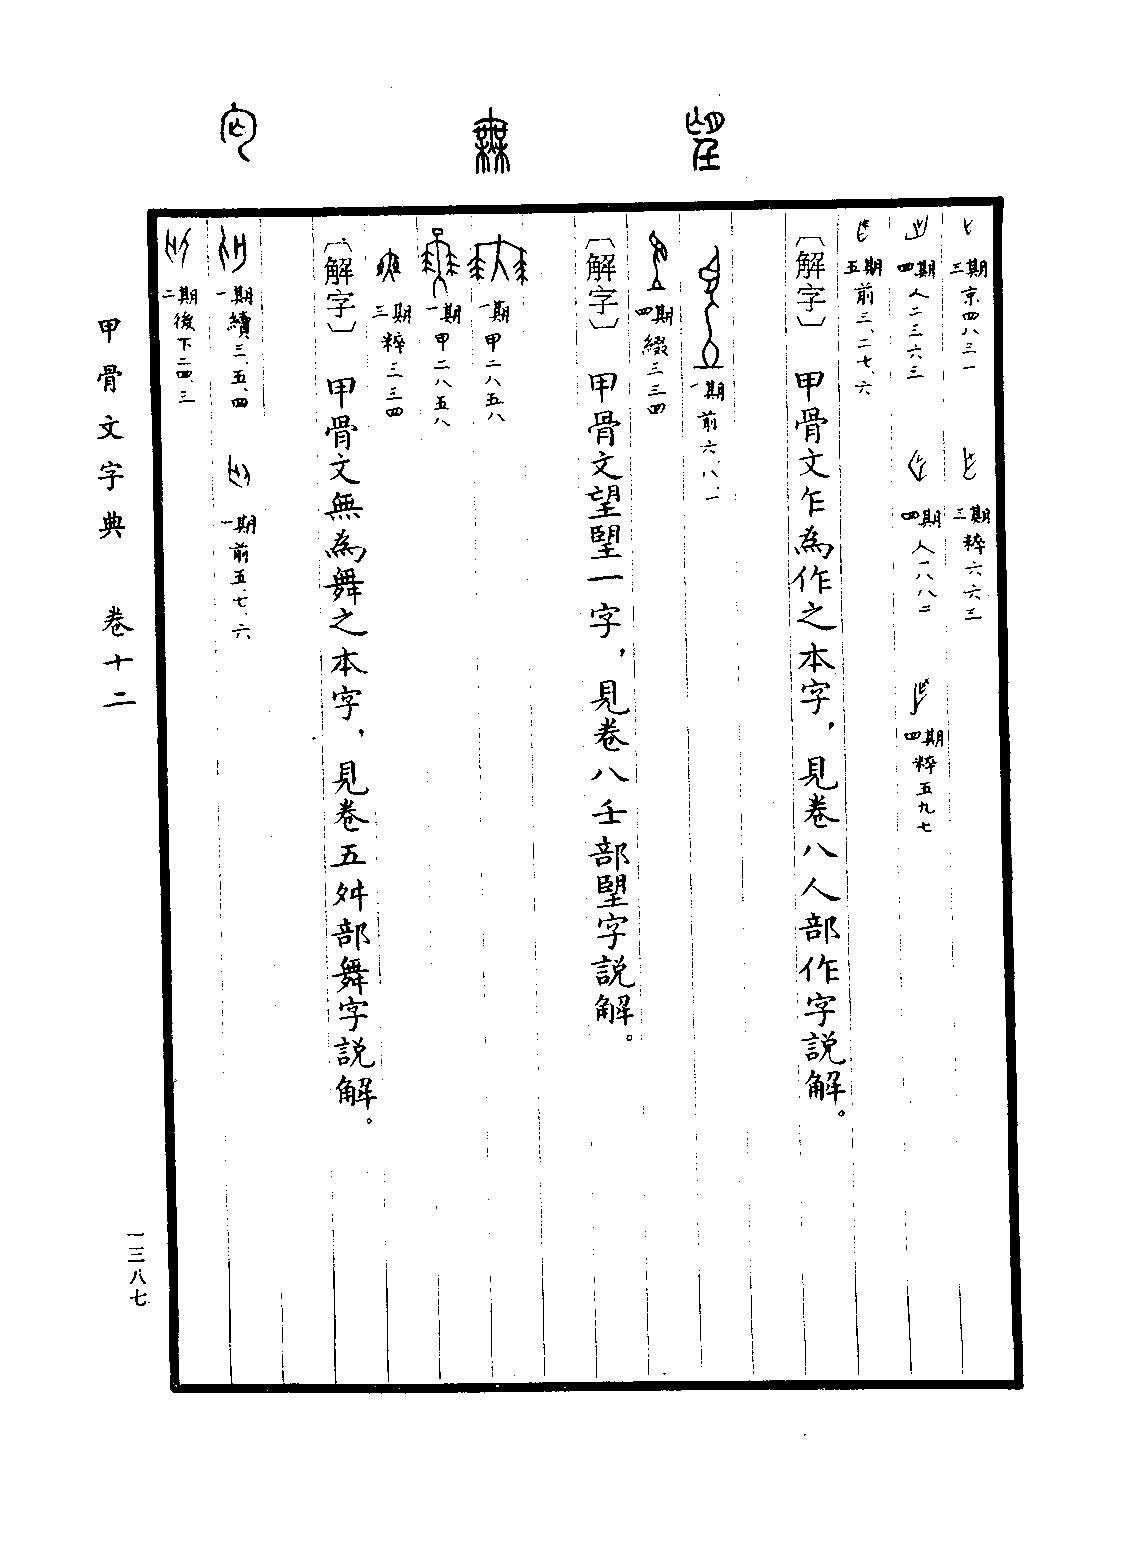 三期 京四八三一
三期 粹六六三
四期 人二三六三
四期 人一八八二
四期 粹五九七
五期 前三、二七、六
〔解字〕 甲骨文乍為作之本字，見卷八人部作字説解。
一期 前六、八、一
四期 綴三三四
〔解字〕 甲骨文望朢一字，見卷八壬部朢字説解。
一期 甲二八五八
一期 甲二八五八
三期 粹三三四
〔解字〕 甲骨文無為舞之本字，見卷五舛部舞字説解。
一期 續三、五、四
一期 前五、七、六
二期 後下二四、三
甲骨文字典 卷十二
一三八七